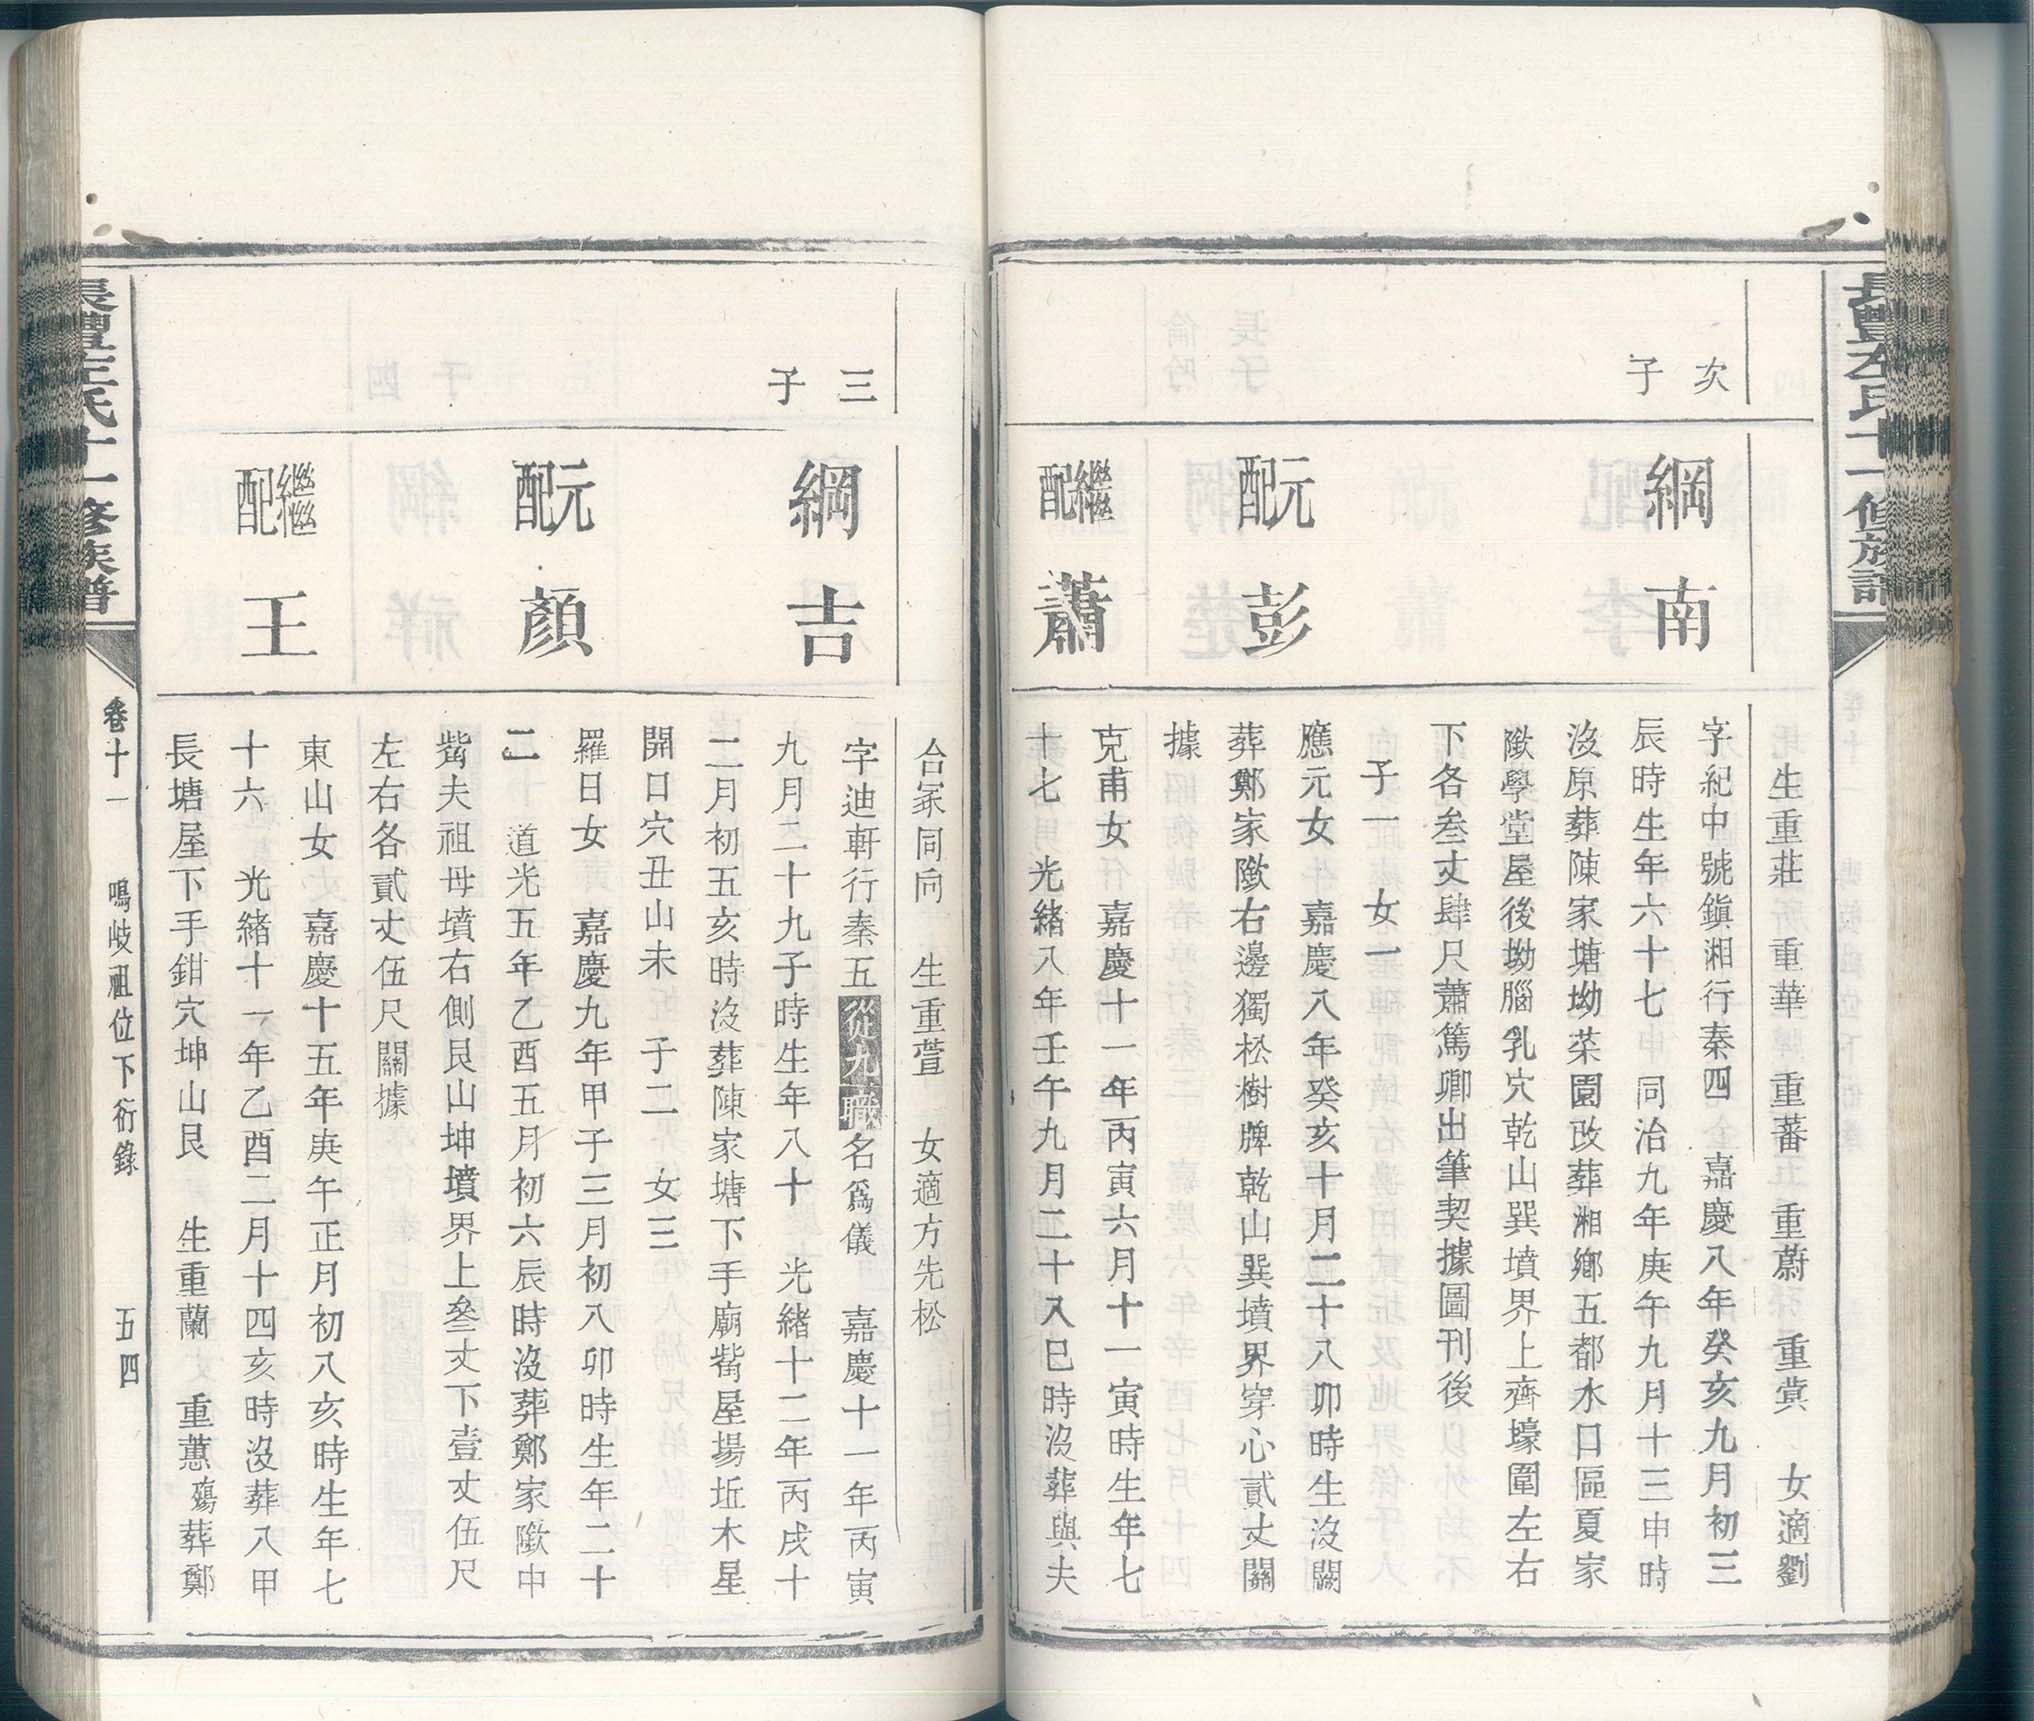 長豐左氏十一修族譜
生重莊 重華 重蕃 重蔚 重蓂 女適劉
次子
綱南
字紀中號鎮湘行秦四 嘉慶八年癸亥九月初三
辰時生年六十七 同治九年庚午九月十三申時
沒原葬陳家塘坳菜園改葬湘鄉五都水口區夏家
隞學堂屋後坳腦乳穴乾山巽墳界上齊壕圍左右
下各叁丈肆尺蕭篤卿出筆契據圖刊後
子一 女一
元配彭
應元女 嘉慶八年癸亥十月二十八卯時生沒關
葬鄭家隞右邊獨松樹牌乾山巽墳界穿心貳丈關
據
繼配蕭
克甫女 嘉慶十一年丙寅六月十一寅時生年七
十七 光緒八年壬午九月二十八巳時沒葬與夫
合冢同向 生重萱 女適方先松
三子
綱吉
字迪軒行秦五從九職名為儀 嘉慶十一年丙寅
九月二十九子時生年八十 光緒十二年丙戌十
二月初五亥時沒葬陳家塘下手廟觜屋場坵木星
開口穴丑山未 子二 女三
元配顏
羅日女 嘉慶九年甲子三月初八卯時生年二十
二 道光五年乙酉五月初六辰時沒葬鄭家隞中
觜夫祖母墳右側艮山坤墳界上叁丈下壹丈伍尺
左右各貳丈伍尺關據
繼配王
東山女 嘉慶十五年庚午正月初八亥時生年七
十六 光緒十一年乙酉二月十四亥時沒葬八甲
長塘屋下手鉗穴坤山艮 生重蘭 重蕙殤葬鄭
長豐左氏十一修族譜
卷十一 鳴岐祖位下衍錄 五四